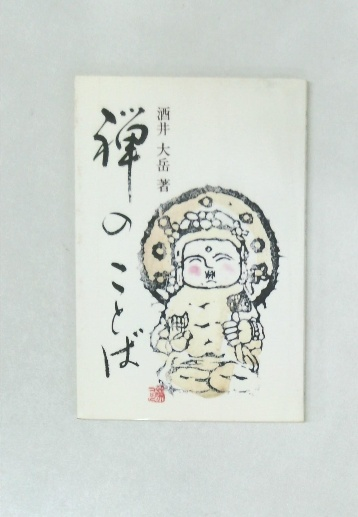 禅のことば
酒井 大岳 著